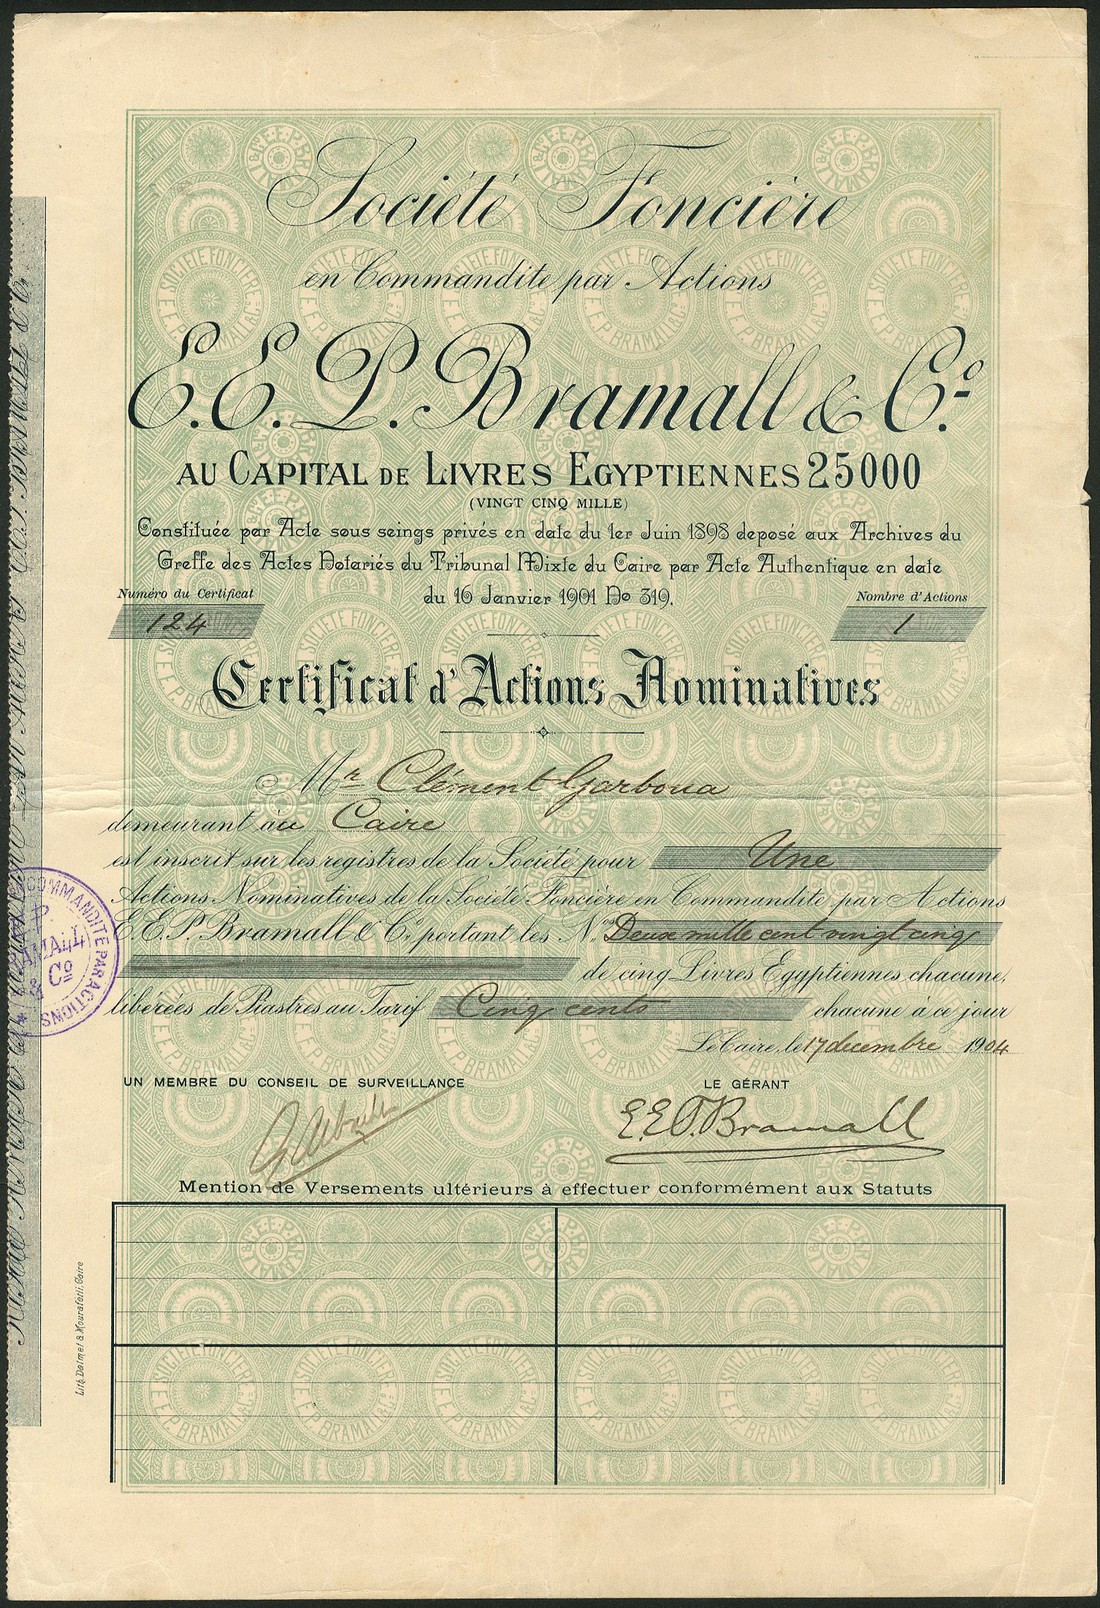 Société Foncière
en Commandite par Actions
E. E. P. Bramall & Co.
AU CAPITAL DE LIVRES EGYPTIENNES 25000
(VINGT CINQ MILLE)
Constituée par Acte sous seings privés en date du 1er Juin 1898 deposé aux Archives du
Greffe des Actes Notariés du Tribunal Mixte du Caire par Acte Authentique en date
du 16 Janvier 1901 No 319.
Numéro du Certificat
124
Nombre d'Actions
1
Certificat d'Actions Nominatives
Mr Clément Garboua
demeurant au Caire
est inscrit sur les registres de la Société pour Une
Actions Nominatives de la Société Foncière en Commandite par Actions
E.E.P. Bramall & Co. portant les Nos Deux mille cent vingt cinq
de cinq Livres Egyptiennes chacune,
libérées de Piastres au Tarif Cinq cents chacune à ce jour
Le Caire, le 17 decembre 1904
UN MEMBRE DU CONSEIL DE SURVEILLANCE
LE GÉRANT
E.E.P. Bramall
Mention de Versements ultérieurs à effectuer conformément aux Statuts
COMMANDITE PAR ACTIONS
& Co
SOCIÉTÉ FONCIÈRE
E.E.P. BRAMALL & Co.